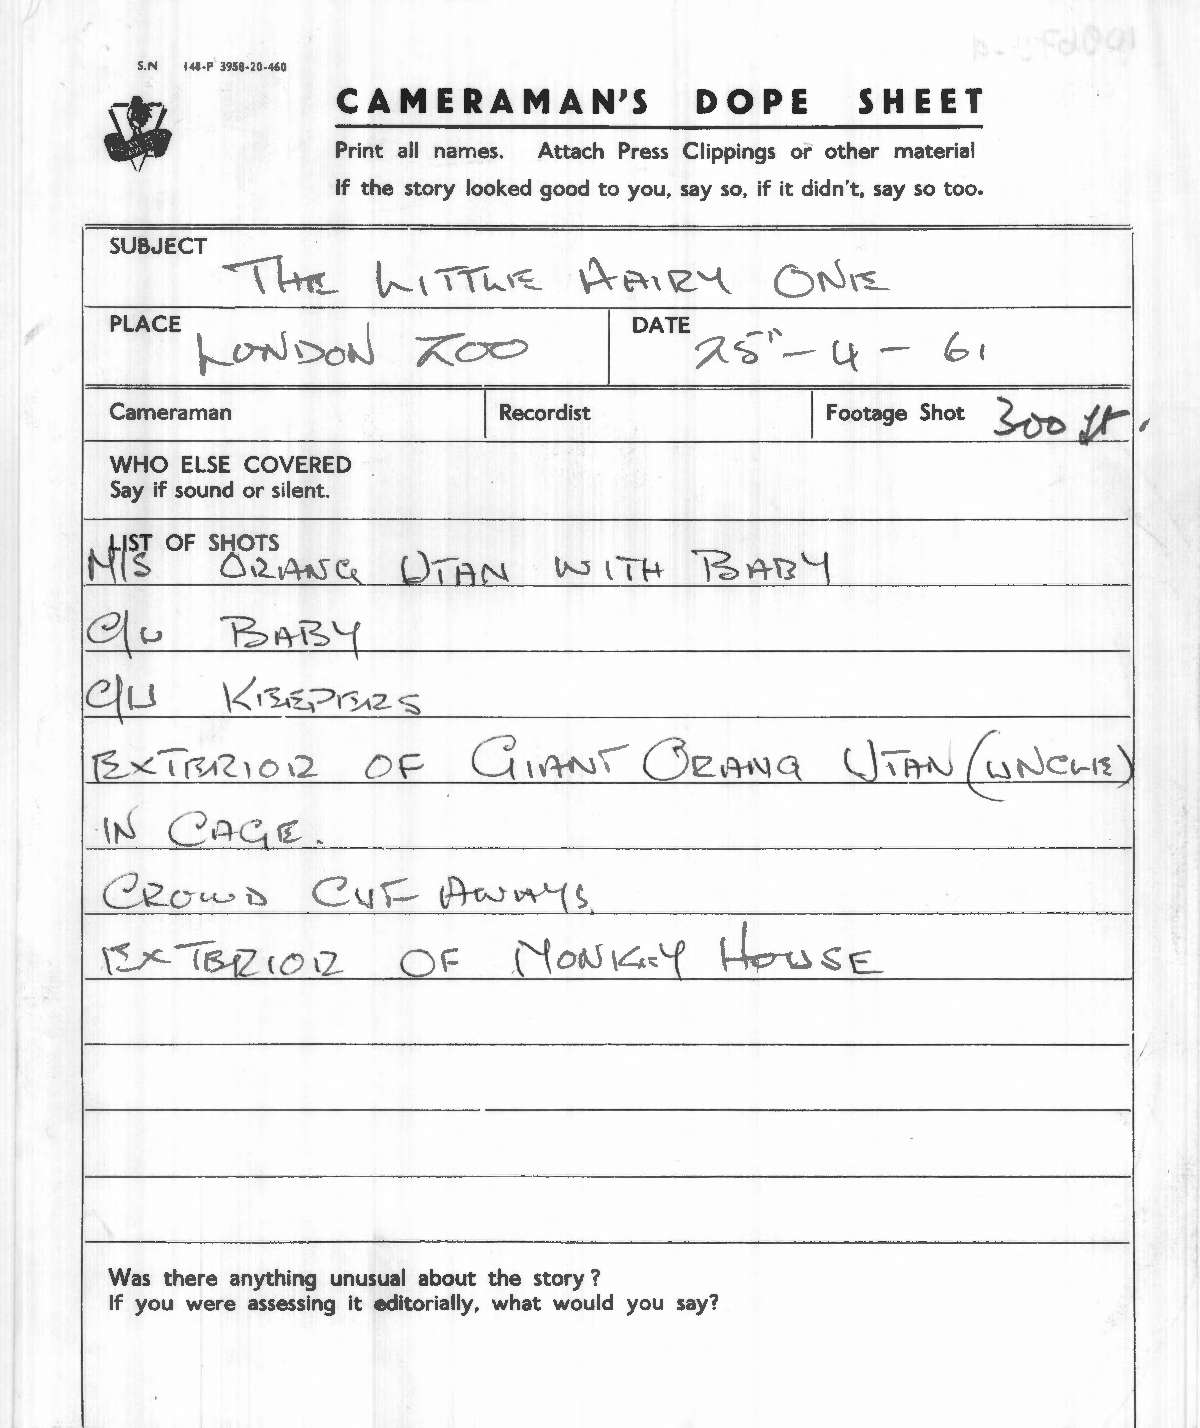 S.N 148-P 3958-20-460
CAMERAMAN'S DOPE SHEET
Print all names. Attach Press Clippings or other material
If the story looked good to you, say so, if it didn't, say so too.
SUBJECT
THE LITTLE HAIRY ONE
PLACE
LONDON ZOO
DATE
25TH - 4 - 61
Cameraman
Recordist
Footage Shot 300 ft.
WHO ELSE COVERED
Say if sound or silent.
LIST OF SHOTS
M/S ORANG UTAN WITH BABY
C/U BABY
C/U KEEPERS
EXTERIOR OF GIANT ORANG UTAN (UNCLE)
IN CAGE.
CROWD CUT AWAYS
EXTERIOR OF MONKEY HOUSE
Was there anything unusual about the story?
If you were assessing it editorially, what would you say?